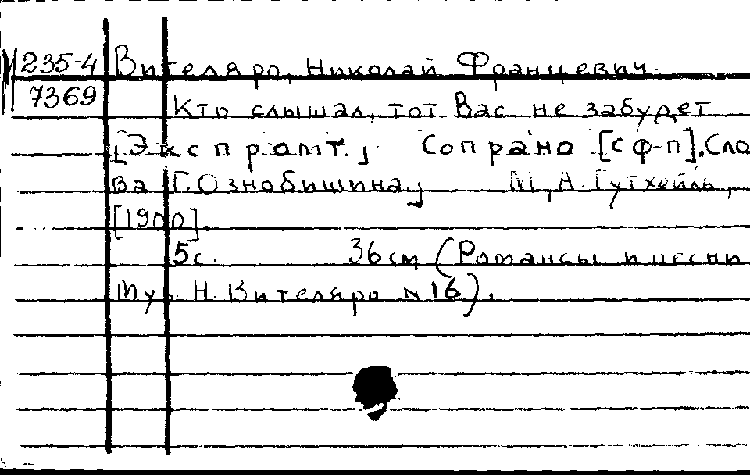 М 235-4 Вителяро, Николай Францевич.
7369 Кто слышал, тот Вас не забудет
[Экспромт.] Сопрано [с ф-п]. Сло
ва [Г. Ознобишина.] М, А. Гутхейль,
[1900].
5 с. 36 см (Романсы и песни
муз. Н. Вителяро №16).